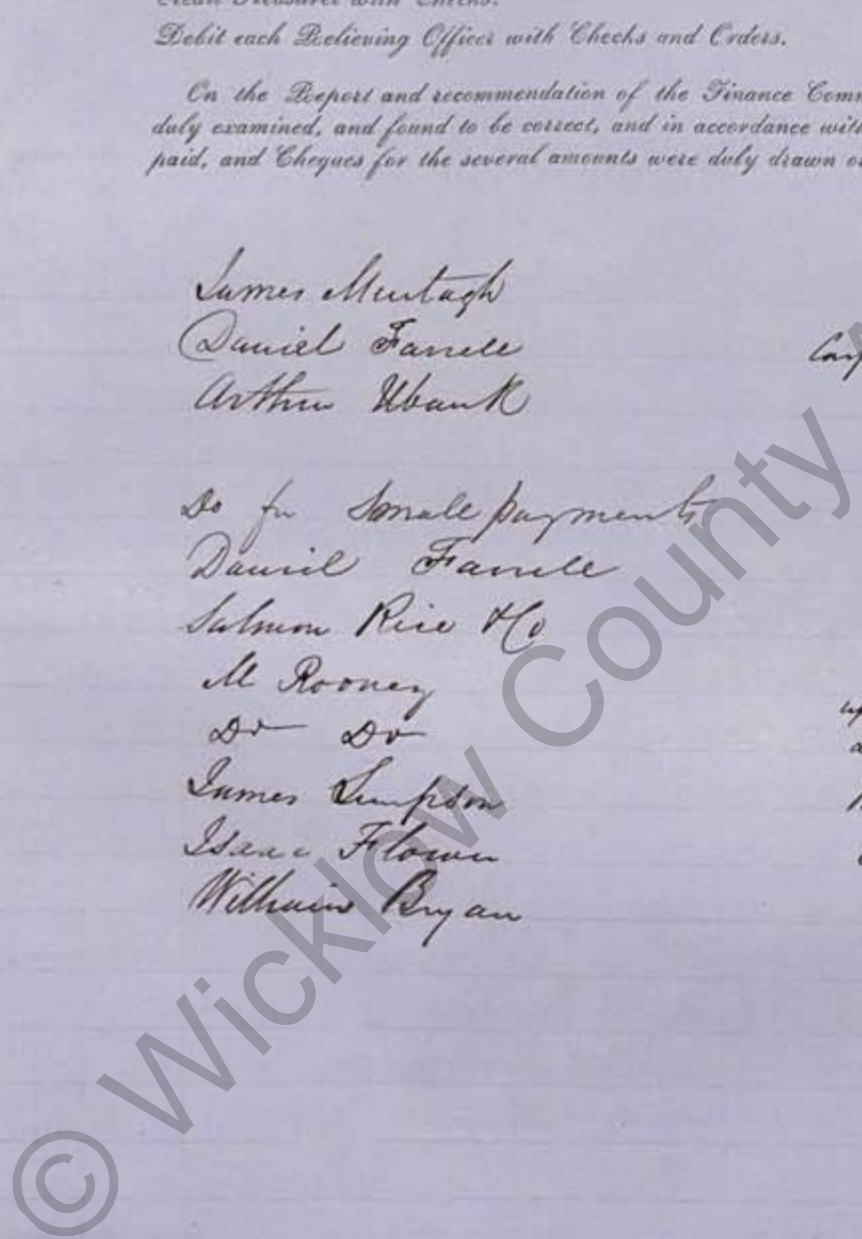 Debit each Relieving Officer with Checks and Orders.
On the Report and recommendation of the Finance Comm
duly examined, and found to be correct, and in accordance with
paid, and Cheques for the several amounts were duly drawn o
James Murtagh
Daniel Farrell
Arthur Ubank
Do for Small payments
Daniel Farrell
Salmon Rice & Co
M Rooney
Do Do
James Simpson
Isaac Flower
William Bryan
© Wicklow County